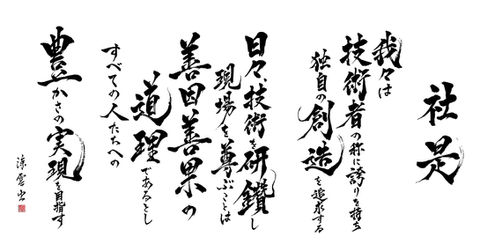 社是
我々は
技術者の称に誇りを持ち
独自の創造を追求する
日々、技術を研鑽し
現場を尊ぶことは
善因善果の
道理であるとし
すべての人たちへの
豊かさの実現を目指す